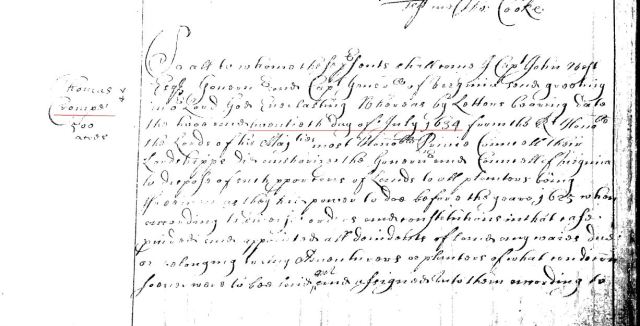 Test me Tho: Cooke
Thomas
Crompe
500
acres
To all to whome these psents shall come I Capt John West
Esqr Govern and Capt Gener of Virginia send greeting
in or Lord God Everlasting Whereas by Letters bearing date
the two and twentieth day of July 1634 from the Rt Honoble
the Lords of his Majties most Honoble Privie Councell their
Lordshipps did authorize the Governr and Councell of Virginia
to dispose of such pportcons of Lands to all planters being
freemen as they had power to doe before the yeare 1625 when
according to orders and constitutions in that case
pvided and appointed all devidents of lands any waies due
or belonging to any Adventurers or planters of what condicon
soever were to bee laid out and assigned unto them according to